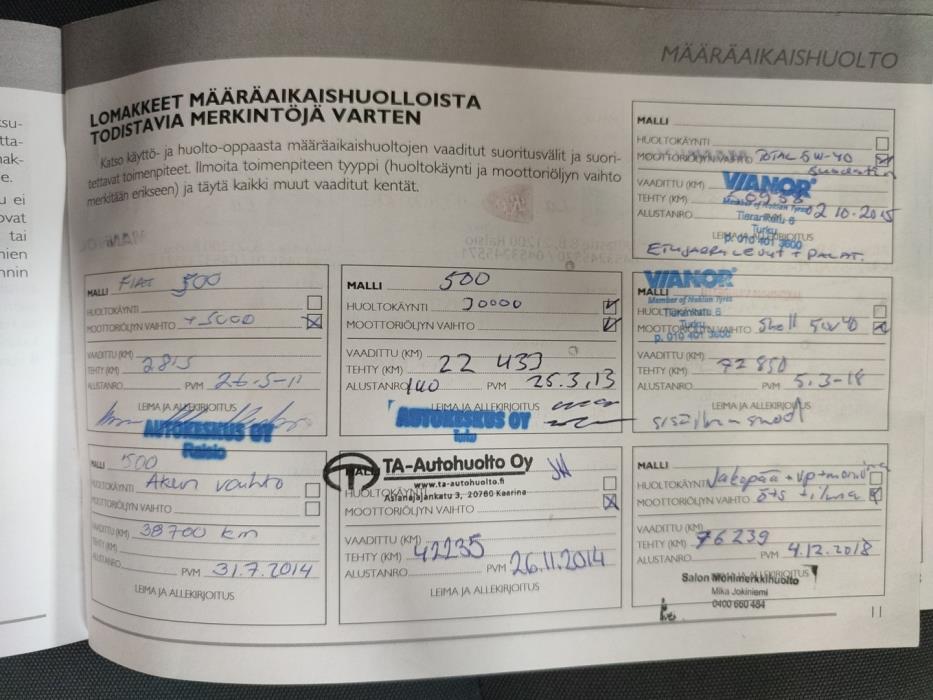 MÄÄRÄAIKAISHUOLTO
su-
tta-
mak-
e.
u ei
ovat
tai
mien
nnin
LOMAKKEET MÄÄRÄAIKAISHUOLLOISTA
TODISTAVIA MERKINTÖJÄ VARTEN
Katso käyttö- ja huolto-oppaasta määräaikaishuoltojen vaaditut suoritusvälit ja suori-
tettavat toimenpiteet. Ilmoita toimenpiteen tyyppi (huoltokäynti ja moottoriöljyn vaihto
merkitään erikseen) ja täytä kaikki muut vaaditut kentät.
MALLI
HUOLTOKÄYNTI
MOOTTORIÖLJYN VAIHTO TOTAL 5W-40
Suodatin
VAADITTU (KM)
VIANOR
Member of Nokian Tyres
TEHTY (KM) 60958
ALUSTANRO 02 10-2015
Tierankatu 6
Turku
LEIMA JA ALLEKIRJOITUS
p. 010 401 3600
ETUJARRULEVYT + PALAT.
MALLI FIAT 500
HUOLTOKÄYNTI
MOOTTORIÖLJYN VAIHTO +5000
VAADITTU (KM)
TEHTY (KM) 2815
ALUSTANRO PVM 26.5-11
LEIMA JA ALLEKIRJOITUS
AUTOKESKUS OY
Raisio
MALLI 500
HUOLTOKÄYNTI 30000
MOOTTORIÖLJYN VAIHTO
VAADITTU (KM)
TEHTY (KM) 22 433
ALUSTANRO 140 PVM 25.3.13
LEIMA JA ALLEKIRJOITUS
AUTOKESKUS OY
Turku
VIANOR
MALLI
Member of Nokian Tyres
HUOLTOKÄYNTI
Tierankatu 6
MOOTTORIÖLJYN VAIHTO Shell 5W40
Turku
p. 010 401 3600
VAADITTU (KM)
TEHTY (KM) 72 850
ALUSTANRO PVM 5.3-18
LEIMA JA ALLEKIRJOITUS
MALLI 500
HUOLTOKÄYNTI Akun vaihto
MOOTTORIÖLJYN VAIHTO
VAADITTU (KM) 38700 km
TEHTY (KM)
ALUSTANRO PVM 31.7.2014
LEIMA JA ALLEKIRJOITUS
MALLI TA-Autohuolto Oy
www.ta-autohuolto.fi
HUOLTOKÄYNTI
Asianajajankatu 3, 20780 Kaarina
MOOTTORIÖLJYN VAIHTO
VAADITTU (KM)
TEHTY (KM) 42235
ALUSTANRO PVM 26.11.2014
LEIMA JA ALLEKIRJOITUS
MALLI
HUOLTOKÄYNTI Jakopää + vp +
MOOTTORIÖLJYN VAIHTO ö+s + ilma
VAADITTU (KM)
TEHTY (KM) 76239
ALUSTANRO PVM 4.12.2018
LEIMA JA ALLEKIRJOITUS
Salon Monimerkkihuolto
Mika Jokiniemi
0400 660 484
11